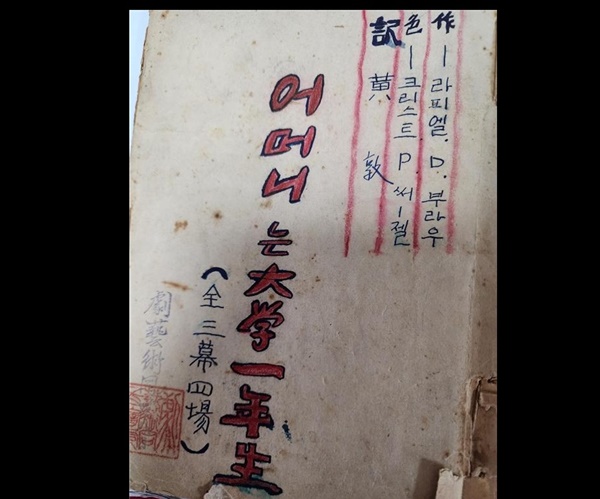 作 ー 라피엘. D. 부라우
色 ー 크리스트. P. 써ー젤
訳 黄 敦
어머니는 大学一年生
(全三幕四場)
劇藝術